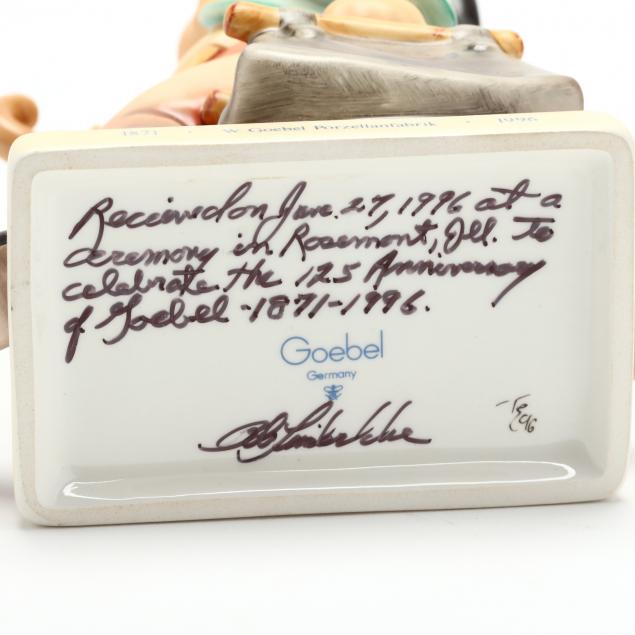 1871 · W. Goebel Porzellanfabrik · 1996
Received on June 27, 1996 at a
ceremony in Rosemont, Ill. to
celebrate the 125 Anniversary
of Goebel - 1871-1996.
Goebel
Germany